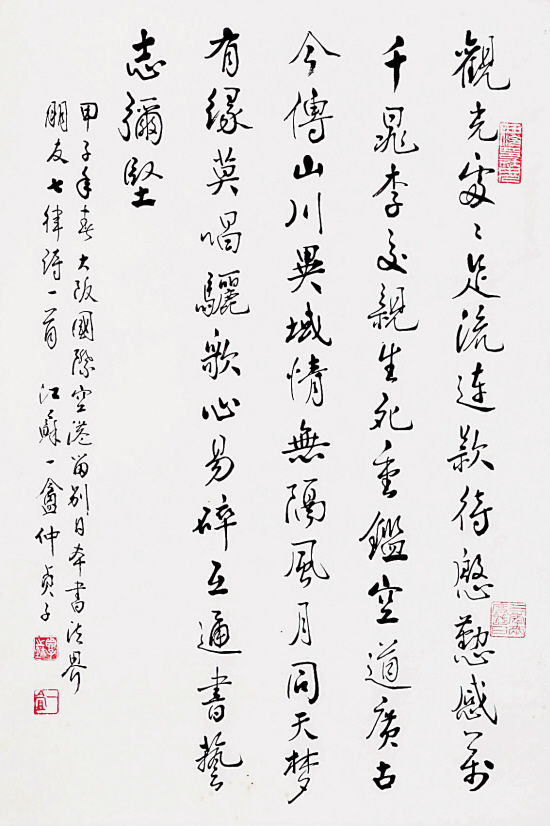 觀光處〻足流連款待慇懃感萬
千晁李交親生死重鑑空道廣古
今傳山川異域情無隔風月同天梦
有緣莫唱驪歌心易碎互通書藝
志彌堅
甲子年春大阪國際空港留別日本書法界
朋友七律詩一首 江蘇一盦仲貞子